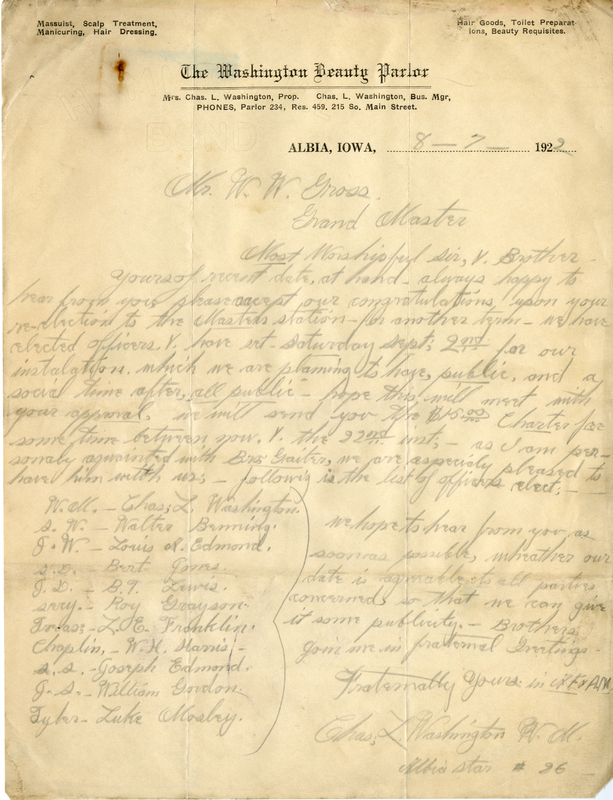 Massuist, Scalp Treatment,
Manicuring, Hair Dressing.
Hair Goods, Toilet Preparat-
ions, Beauty Requisites.
The Washington Beauty Parlor
Mrs. Chas. L. Washington, Prop. Chas. L. Washington, Bus. Mgr,
PHONES, Parlor 234, Res. 459. 215 So. Main Street.
ALBIA, IOWA, 8 — 7 — 1922
Mr. W. W. Gross.
Grand Master
Most Worshipful Sir, & Brother -
yours of recent date, at hand - always happy to
hear from you please accept our congratulations, upon your
re-election to the Masters station - for another term - we have
elected officers, & have set Saturday Sept; 2nd for our
instalation. which we are planing to have, public, and a
social time after, all public - hope this will meet with
your approval. we will send you the $45.00 Charter fee
some time between now, & the 22nd inst; - as I am per-
sonaly aquainted with Bro; Gaiter, we are especialy pleased to
have him with us; - following is the list of officers elect; -
W. M. - Chas; L. Washington.
S. W. - Walter Benning.
J. W. - Louis R. Edmond.
S. D. - Bert Jones.
J. D. - B. T. Lewis.
Secy. - Roy Grayson.
Treas; - L. E. Franklin.
Chaplin, - W. H. Harris; -
S. S. - Joseph Edmond.
J. S. - William Gordon.
Tyler - Luke Mosley.
we hope to hear from you, as
soon as possible, wheather our
date is agreable to all parties
concerned, so that we can give
it some publicity. - Brothers,
join me in fraternal Greetings -
Fraternally Yours. in
Chas; L. Washington W. M.
Albia Star # 26